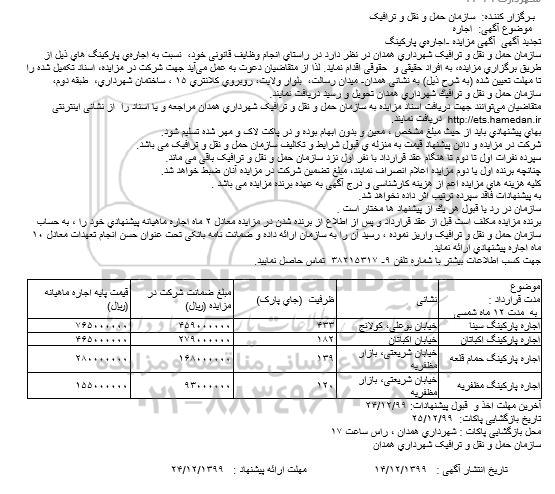 برگزار کننده: سازمان حمل و نقل و ترافیک
موضوع آگهی: اجاره
تجدید آگهی آگهی مزایده -اجاره‌ي پارکینگ
سازمان حمل و نقل و ترافیک شهرداري همدان در نظر دارد در راستاي انجام وظایف قانونی خود، نسبت به اجاره‌ي پارکینگ هاي ذیل از
طریق برگزاري مزایده، به افراد حقیقی و حقوقی اقدام نماید. لذا از متقاضیان دعوت به عمل می‌آید جهت شرکت در مزایده، اسناد تکمیل شده را
تا مهلت تعیین شده (به شرح ذیل) به نشانی همدان- میدان رسالت، بلوار ولایت، روبروي کلانتري ۱۵ ، ساختمان شهرداري، طبقه دوم،
سازمان حمل و نقل و ترافیک شهرداري همدان تحویل و رسید دریافت نمایند.
متقاضیان می‌توانند جهت دریافت اسناد مزایده به سازمان حمل و نقل و ترافیک شهرداري همدان مراجعه و یا اسناد را از نشانی اینترنتی
http://ets.hamedan.ir دریافت نمایند.
بهاي پیشنهادي باید از حیث مبلغ مشخص ، معین و بدون ابهام بوده و در پاکت لاک و مهر شده تسلیم شود.
شرکت در مزایده و دادن پیشنهاد قیمت به منزله ي قبول شرایط و تکالیف سازمان حمل و نقل و ترافیک می باشد.
سپرده نفرات اول تا دوم تا هنگام عقد قرارداد با نفر اول نزد سازمان حمل و نقل و ترافیک باقی می ماند.
چنانچه برنده اول یا دوم مزایده اعلام انصراف نمایند، مبلغ تضمین شرکت در مزایده آنان ضبط خواهد شد.
کلیه هزینه هاي مزایده اعم از هزینه کارشناسی و درج آگهی به عهده برنده مزایده می باشد .
به پیشنهادات فاقد سپرده ترتیب اثر داده نخواهد شد.
سازمان در رد یا قبول هر یك از پیشنهاد ها مختار است .
برنده مزایده مکلف است قبل از عقد قرارداد و پس از اطلاع از برنده شدن در مزایده معادل ۲ ماه اجاره ماهیانه پیشنهادي خود را ، به حساب
سازمان حمل و نقل و ترافیک، واریز نموده ، رسید آن را به سازمان ارائه داده و ضمانت نامه بانکی تحت عنوان حسن انجام تعهدات معادل ۱۰
ماه اجاره پیشنهادي ارائه نماید.
جهت کسب اطلاعات بیشتر با شماره تلفن ۹- ۳۸۲۱۵۳۱۷ تماس حاصل نمایید.
موضوع مدت قرارداد : به مدت ۱۲ ماه شمسی | نشانی | ظرفیت (جاي پارک) | مبلغ ضمانت شرکت در مزایده (ریال) | قیمت پایه اجاره ماهیانه (ریال)
اجاره پارکینگ سینا | خیابان بوعلی، کولانج | ۴۳۳ | ۴۵۹۰۰۰۰۰۰ | ۷۶۵۰۰۰۰۰۰
اجاره پارکینگ اکباتان | خیابان اکباتان | ۱۸۲ | ۲۷۹۰۰۰۰۰۰ | ۴۶۵۰۰۰۰۰۰
اجاره پارکینگ حمام قلعه | خیابان شریعتی، بازار مظفریه | ۱۳۹ | ۱۶۸۰۰۰۰۰۰ | ۲۸۰۰۰۰۰۰۰
اجاره پارکینگ مظفریه | خیابان شریعتی، بازار مظفریه | ۱۲۰ | ۹۳۰۰۰۰۰۰ | ۱۵۵۰۰۰۰۰۰
آخرین مهلت اخذ و قبول پیشنهادات: ۲۴/۱۲/۹۹
تاریخ بازگشایی پاکات: ۲۵/۱۲/۹۹
محل بازگشایی پاکات : شهرداري همدان ، راس ساعت ۱۷
سازمان حمل و نقل و ترافیک شهرداري همدان
تاریخ انتشار آگهی : ۱۴/۱۲/۱۳۹۹ مهلت ارائه پیشنهاد : ۲۴/۱۲/۱۳۹۹
ParsNamadData
۰۲۱-۸۸۳۴۹۶۷۰-۵